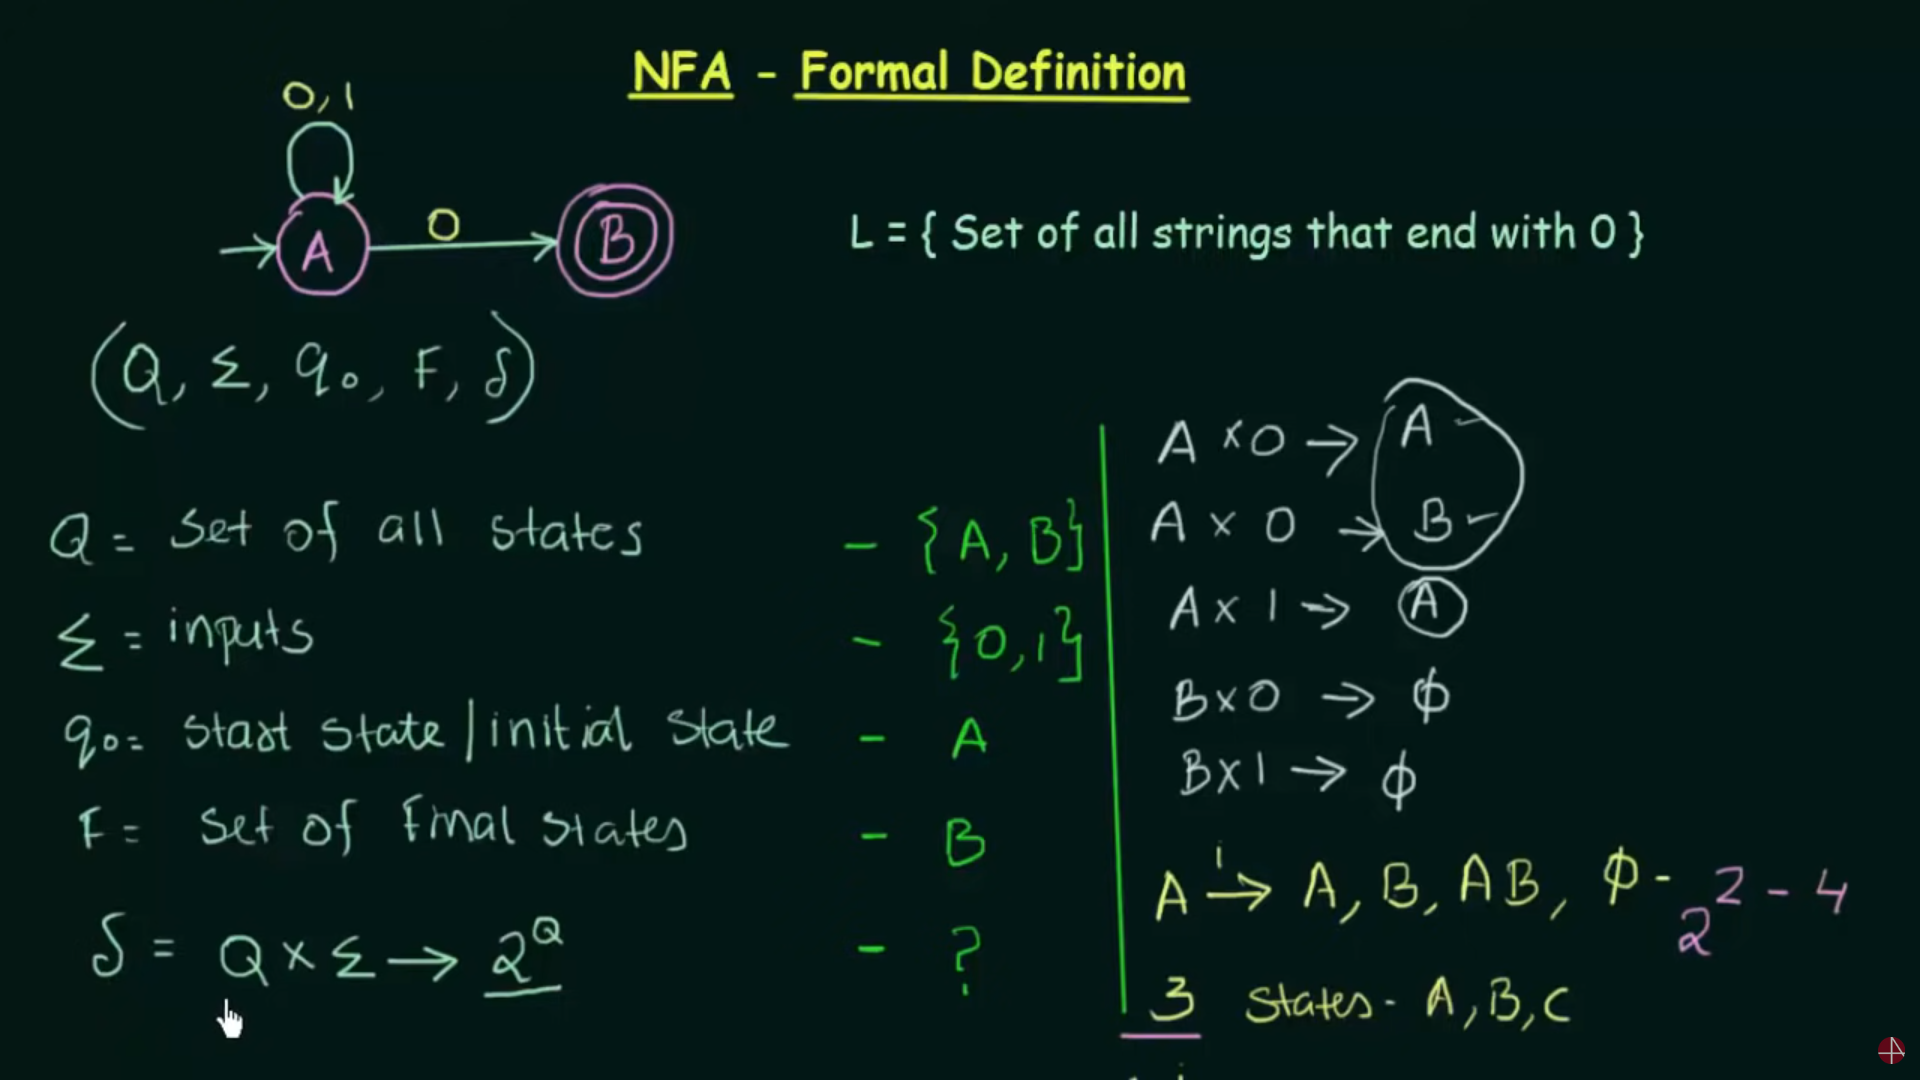 NFA - Formal Definition
0, 1
A
0
B
L = { Set of all strings that end with 0 }
(Q, Σ, q₀, F, δ)
Q = set of all states - {A, B}
Σ = inputs - {0, 1}
q₀ = start state | initial state - A
F = set of Final states - B
δ = Q × Σ → 2^Q - ?
A × 0 → A
A × 0 → B
A × 1 → A
B × 0 → ϕ
B × 1 → ϕ
A → A, B, AB, ϕ - 2² - 4
3 states - A, B, C